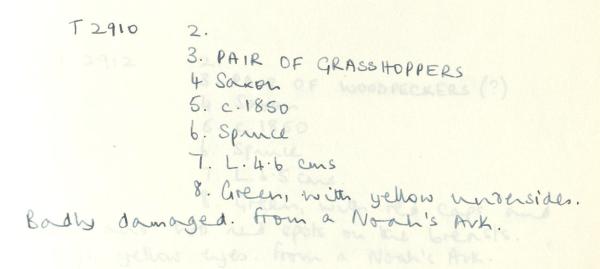 T 2910 2.
3. PAIR OF GRASSHOPPERS
4 Saxon
5. c.1850
6. Spruce
7. L.4.6 cms
8. Green, with yellow undersides.
Badly damaged. from a Noah's Ark.